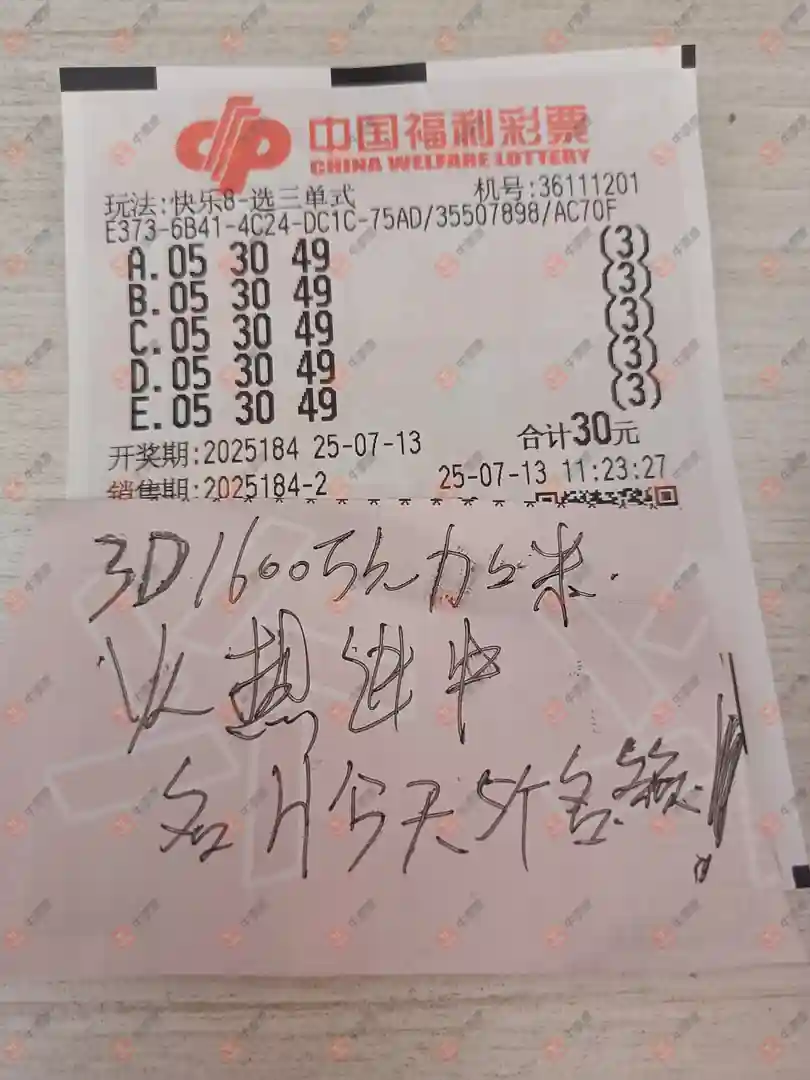 中国福利彩票
CHINA WELFARE LOTTERY
玩法:快乐8-选三单式 机号:36111201
E373-6B41-4C24-DC1C-75AD/35507898/AC70F
A.05 30 49 (3)
B.05 30 49 (3)
C.05 30 49 (3)
D.05 30 49 (3)
E.05 30 49 (3)
开奖期:2025184 25-07-13 合计30元
销售期:2025184-2 25-07-13 11:23:27
3D1600万元加奖.
火热进行中
名片今天5个名额!